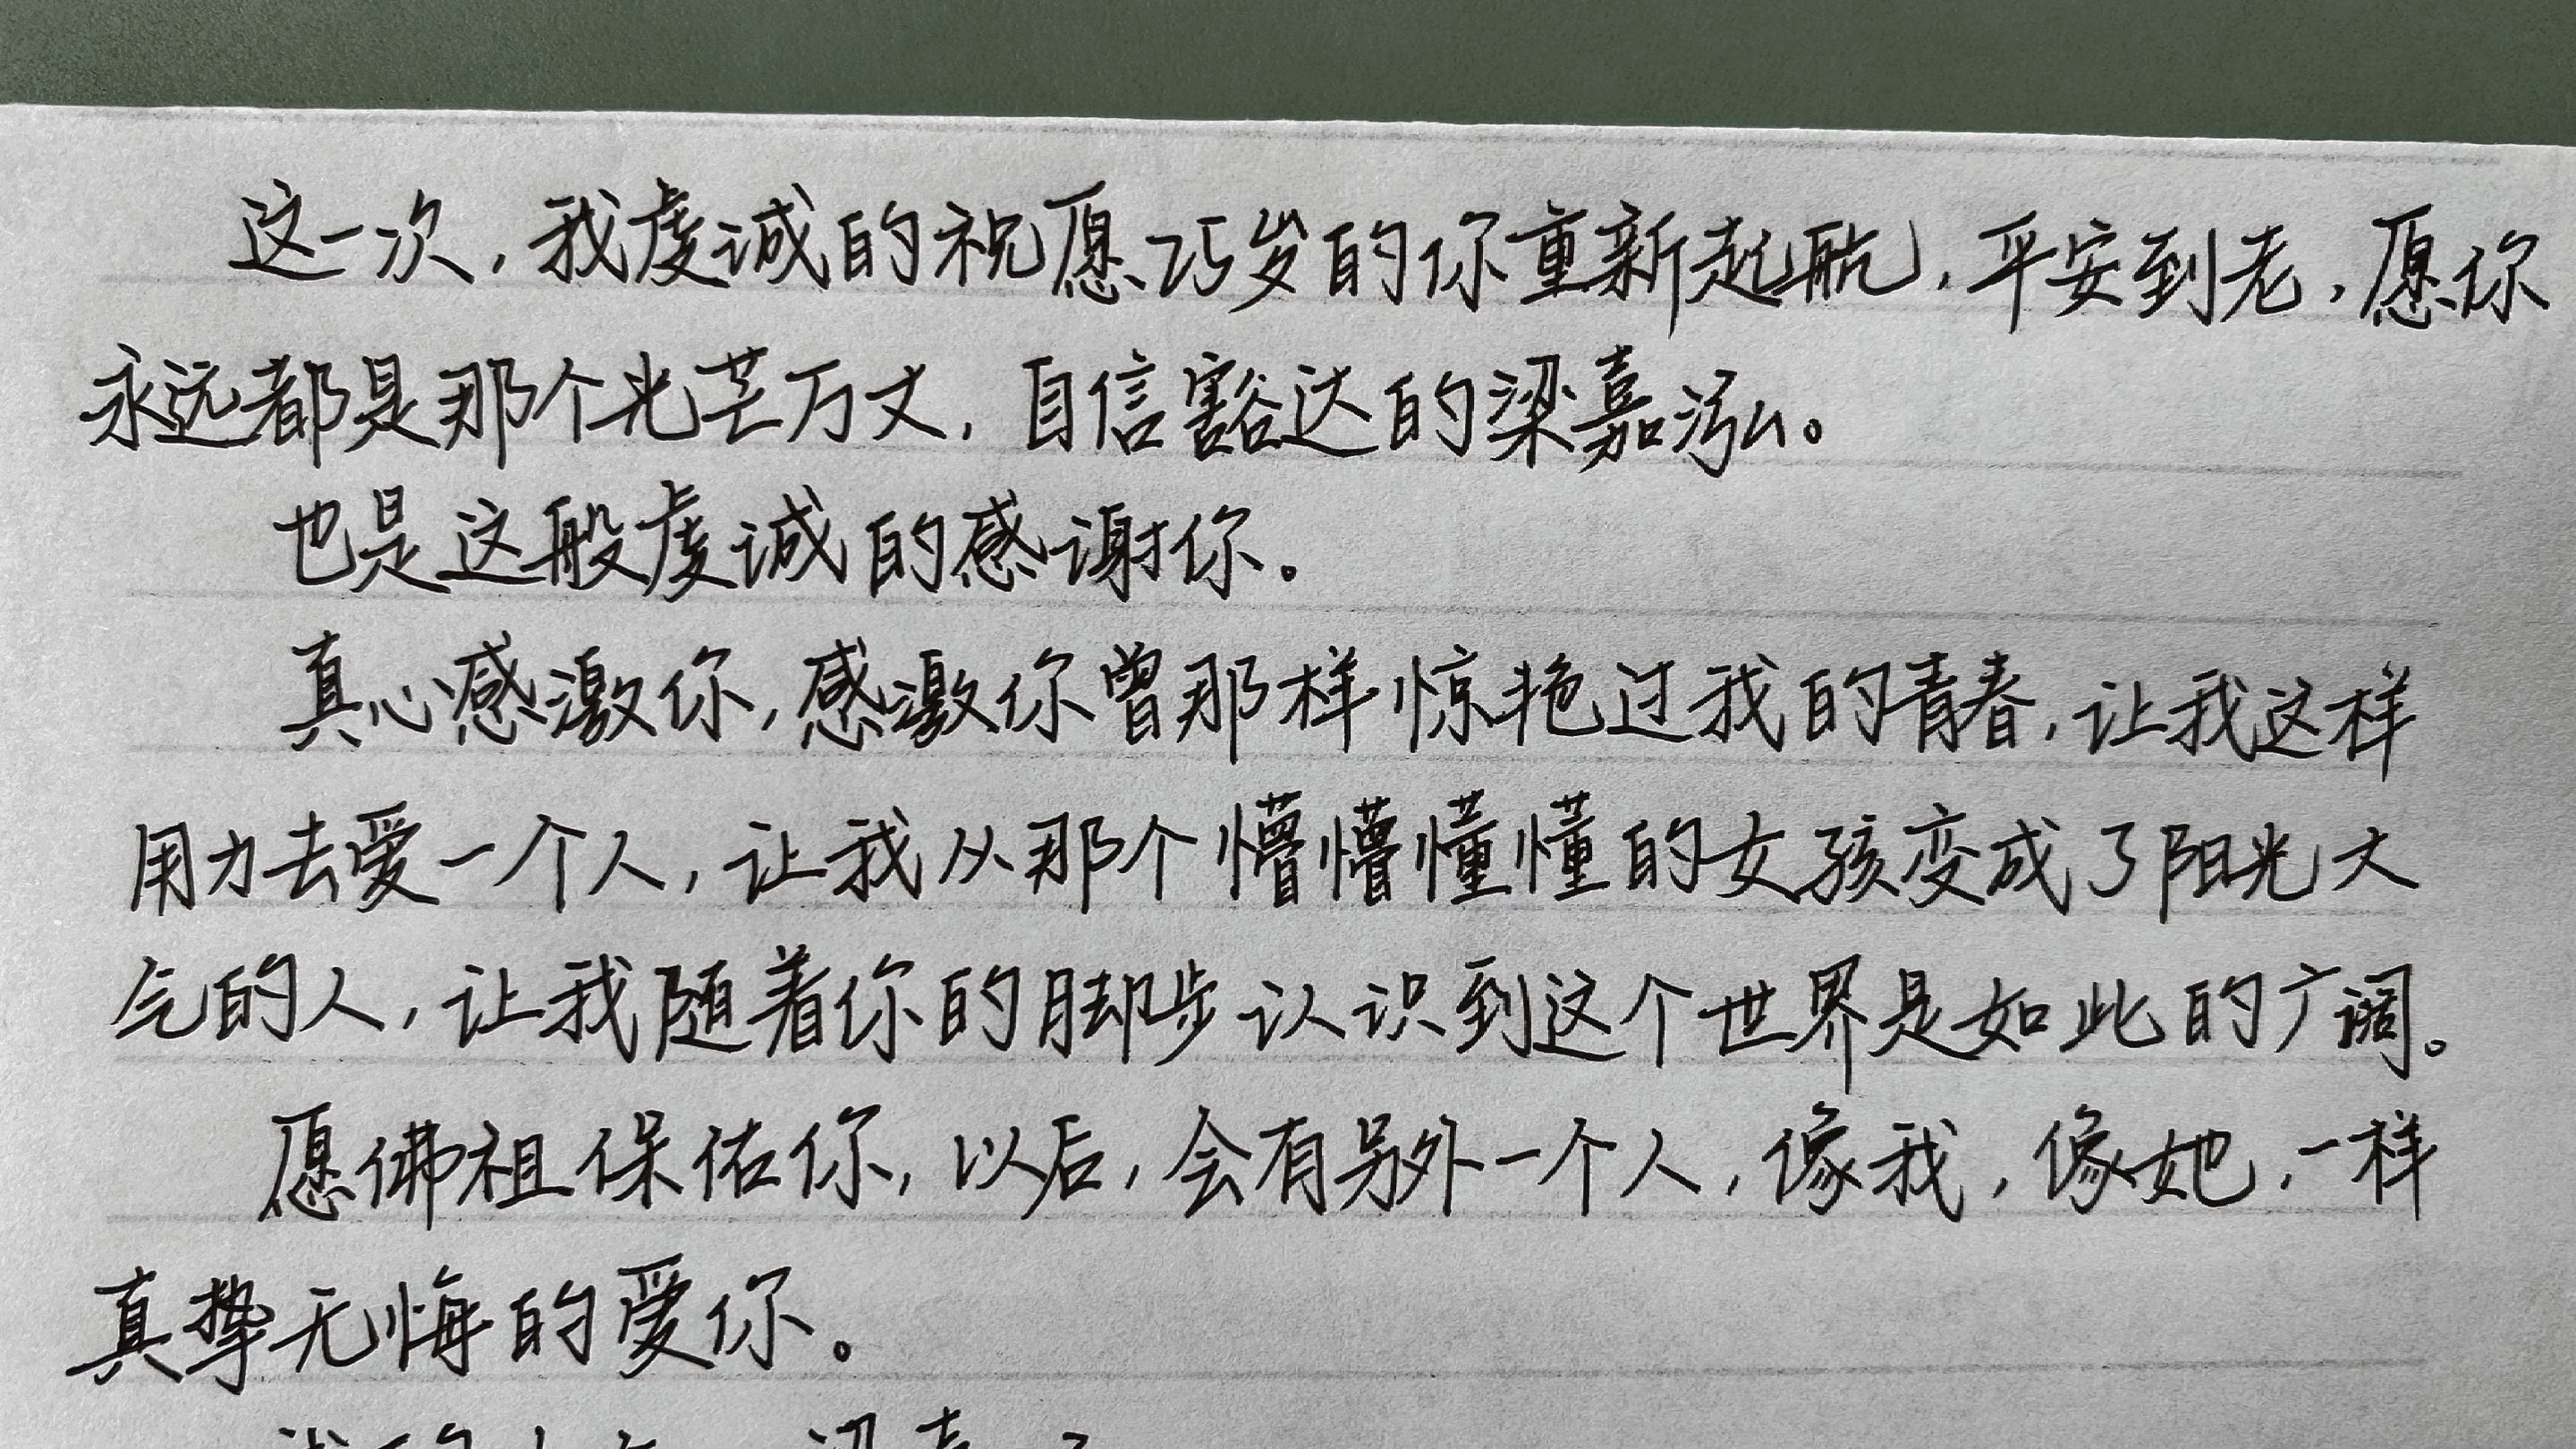 这一次，我虔诚的祝愿25岁的你重新起航，平安到老，愿你
永远都是那个光芒万丈，自信豁达的梁嘉泓。
也是这般虔诚的感谢你。
真心感激你，感激你曾那样惊艳过我的青春，让我这样
用力去爱一个人，让我从那个懵懵懂懂的女孩变成了阳光大
气的人，让我随着你的脚步认识到这个世界是如此的广阔。
愿佛祖保佑你，以后，会有另外一个人，像我，像她，一样
真挚无悔的爱你。